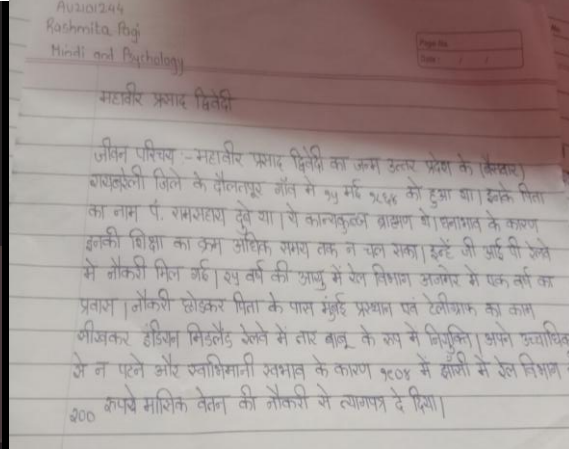 AU2101244
Rashmita Pagi
Hindi and Psychology
Page No.
Date: / /
महावीर प्रसाद द्विवेदी
जीवन परिचय :- महावीर प्रसाद द्विवेदी का जन्म उत्तर प्रदेश के (बैसवारा)
रायबरेली जिले के दौलतपुर गाँव में १५ मई १८६४ को हुआ था। इनके पिता
का नाम पं. रामसहाय दुबे था। ये कान्यकुब्ज ब्राह्मण थे। धनाभाव के कारण
इनकी शिक्षा का क्रम अधिक समय तक न चल सका। इन्हें जी आई पी रेलवे
में नौकरी मिल गई। २५ वर्ष की आयु में रेल विभाग अजमेर में एक वर्ष का
प्रवास। नौकरी छोडकर पिता के पास मुंबई प्रस्थान एवं टेलीग्राफ का काम
सीखकर इंडियन मिडलैंड रेलवे में तार बाबू के रूप में नियुक्ति। अपने उच्चाधिक
से न पटने और स्वाभिमानी स्वभाव के कारण १९०४ में झाँसी में रेल विभाग
२०० रूपये मासिक वेतन की नौकरी से त्यागपत्र दे दिया।